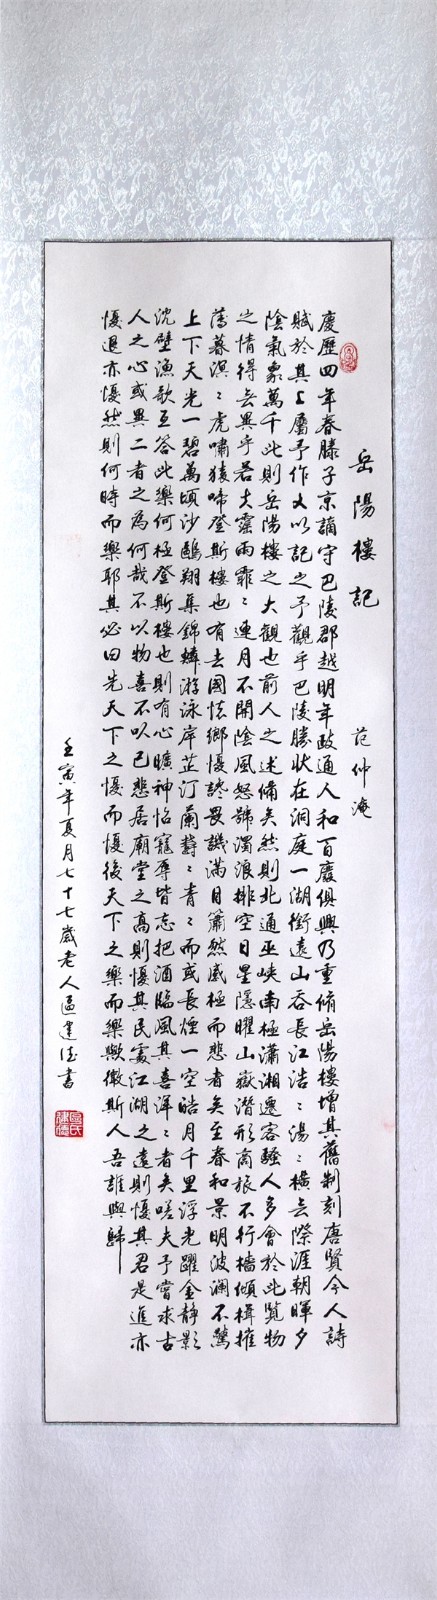 岳陽樓記
范仲淹
慶歷四年春滕子京謫守巴陵郡越明年政通人和百廢俱興乃重脩岳陽樓增其舊制刻唐賢今人詩
賦於其上屬予作文以記之予觀乎巴陵勝狀在洞庭一湖銜遠山吞長江浩〻湯〻橫无際涯朝暉夕
陰氣象萬千此則岳陽樓之大觀也前人之述備矣然則北通巫峽南極瀟湘遷客騷人多會於此覽物
之情得无異乎若夫霪雨霏〻連月不開陰風怒號濁浪排空日星隱曜山嶽潛形商旅不行檣傾楫摧
薄暮溟〻虎嘯猿啼登斯樓也有去國懷鄉憂讒畏譏滿目蕭然感極而悲者矣至春和景明波瀾不驚
上下天光一碧萬頃沙鷗翔集錦鱗游泳岸芷汀蘭欝〻青〻而或長煙一空皓月千里浮光躍金靜影
沈壁漁歌互答此樂何極登斯樓也則有心曠神怡寵辱皆忘把酒臨風其喜洋〻者矣嗟夫予嘗求古
人之心或異二者之為何哉不以物喜不以己悲居廟堂之高則憂其民處江湖之遠則憂其君是進亦
憂退亦憂然則何時而樂耶其必曰先天下之憂而憂後天下之樂而樂歟微斯人吾誰與歸
壬寅年夏月七十七歲老人區建德書
區氏建德